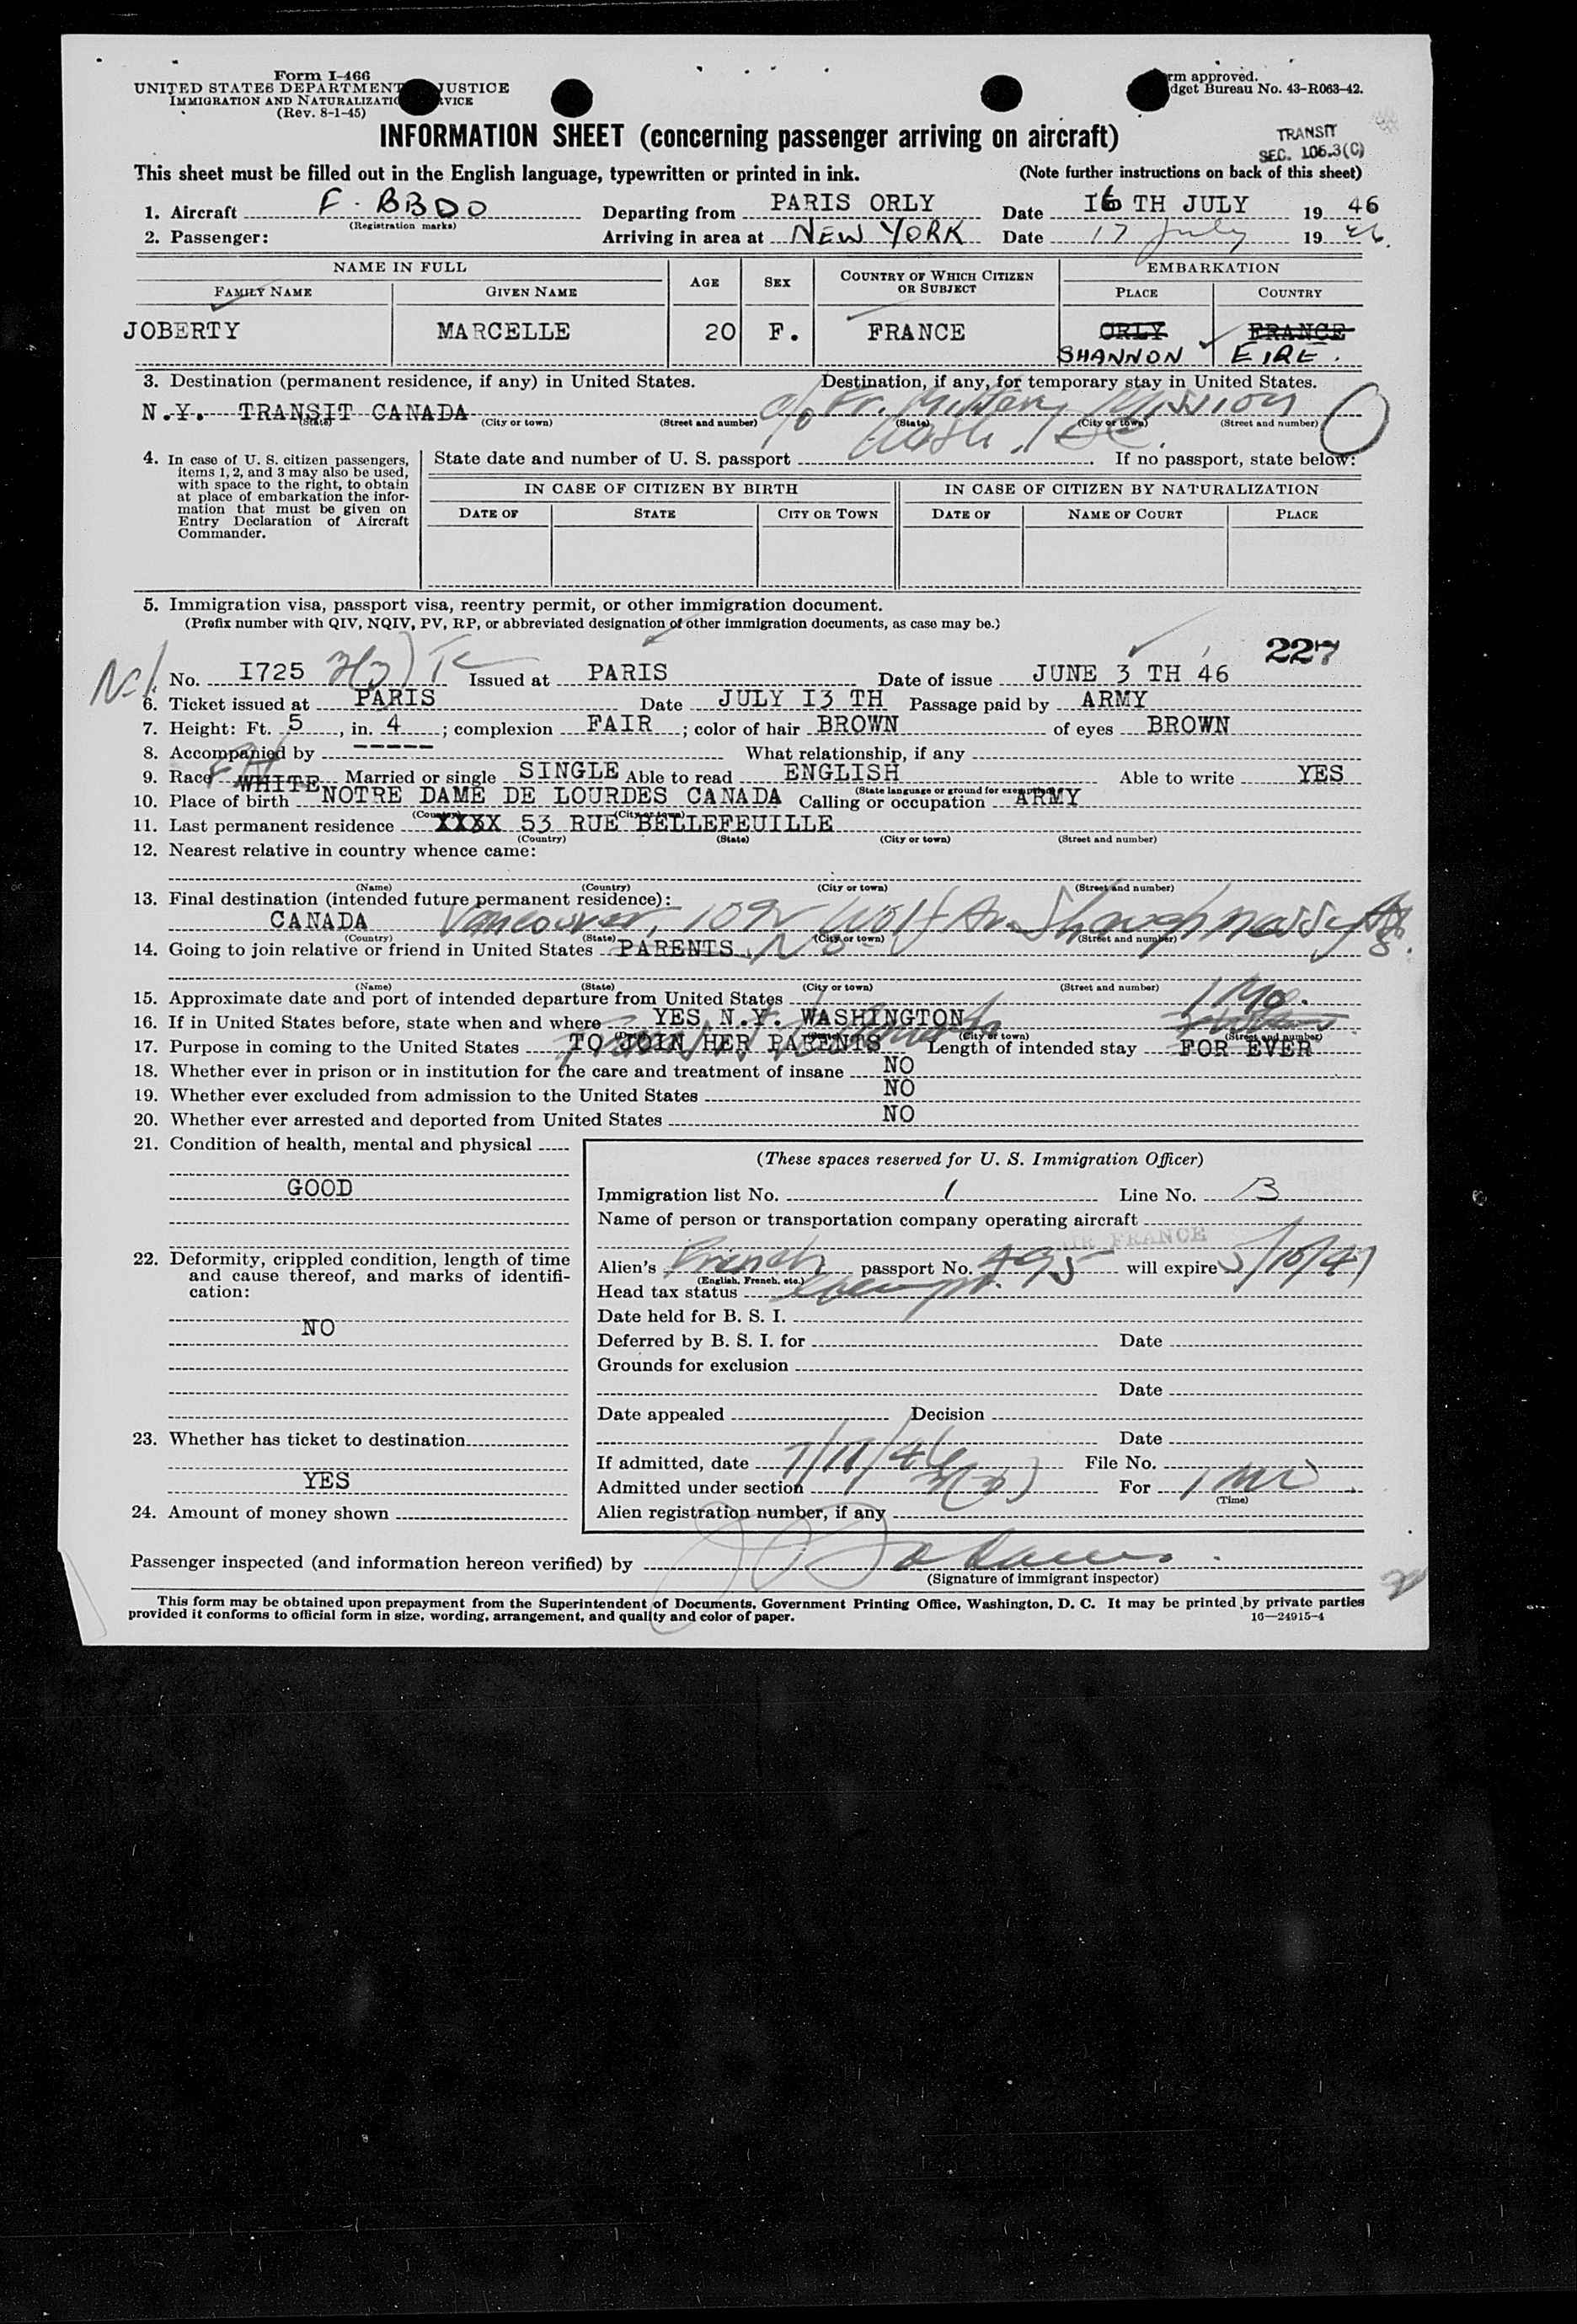 Form I-466
UNITED STATES DEPARTMENT JUSTICE
IMMIGRATION AND NATURALIZATION SERVICE
(Rev. 8-1-45)
rm approved.
dget Bureau No. 43-R063-42.
INFORMATION SHEET (concerning passenger arriving on aircraft)
TRANSIT
SEC. 106.3(C)
This sheet must be filled out in the English language, typewritten or printed in ink. (Note further instructions on back of this sheet)
1. Aircraft F-BBDO Departing from PARIS ORLY Date I6 TH JULY 1946
(Registration marks)
2. Passenger: Arriving in area at NEW YORK Date 17 July 1946.
NAME IN FULL AGE SEX COUNTRY OF WHICH CITIZEN OR SUBJECT EMBARKATION
FAMILY NAME GIVEN NAME PLACE COUNTRY
JOBERTY MARCELLE 20 F. FRANCE ORLY FRANCE
SHANNON EIRE.
3. Destination (permanent residence, if any) in United States. Destination, if any, for temporary stay in United States.
N.Y. TRANSIT CANADA c/o Fr. Military Mission
(State) (City or town) (Street and number) (State) (City or town) (Street and number)
Wash. DC.
4. In case of U. S. citizen passengers, items 1, 2, and 3 may also be used, with space to the right, to obtain at place of embarkation the information that must be given on Entry Declaration of Aircraft Commander.
State date and number of U. S. passport . If no passport, state below:
IN CASE OF CITIZEN BY BIRTH IN CASE OF CITIZEN BY NATURALIZATION
DATE OF STATE CITY OR TOWN DATE OF NAME OF COURT PLACE
5. Immigration visa, passport visa, reentry permit, or other immigration document.
(Prefix number with QIV, NQIV, PV, RP, or abbreviated designation of other immigration documents, as case may be.)
227
No. I725 3(3) Issued at PARIS Date of issue JUNE 3 TH 46
6. Ticket issued at PARIS Date JULY I3 TH Passage paid by ARMY
7. Height: Ft. 5, in. 4; complexion FAIR; color of hair BROWN of eyes BROWN
8. Accompanied by ----- What relationship, if any
9. Race WHITE Married or single SINGLE Able to read ENGLISH Able to write YES
(State language or ground for exemption)
10. Place of birth NOTRE DAME DE LOURDES CANADA Calling or occupation ARMY
(Country) (City or town)
11. Last permanent residence XXXX 53 RUE BELLEFEUILLE
(Country) (State) (City or town) (Street and number)
12. Nearest relative in country whence came:
(Name) (Country) (City or town) (Street and number)
13. Final destination (intended future permanent residence):
CANADA Vancouver, 1092 Wolf Av. Shaughnessy
(Country) (State) (City or town) (Street and number)
14. Going to join relative or friend in United States PARENTS No
(Name) (State) (City or town) (Street and number)
15. Approximate date and port of intended departure from United States 1 Mo.
16. If in United States before, state when and where YES N.Y. WASHINGTON
(Date) (State) (City or town) (Street and number)
17. Purpose in coming to the United States TO JOIN HER PARENTS Length of intended stay FOR EVER
18. Whether ever in prison or in institution for the care and treatment of insane NO
19. Whether ever excluded from admission to the United States NO
20. Whether ever arrested and deported from United States NO
21. Condition of health, mental and physical
GOOD
22. Deformity, crippled condition, length of time and cause thereof, and marks of identification:
NO
23. Whether has ticket to destination
YES
24. Amount of money shown
(These spaces reserved for U. S. Immigration Officer)
Immigration list No. 1 Line No. 3
Name of person or transportation company operating aircraft
AIR FRANCE
Alien's French passport No. 495 will expire 5/10/47
(English, French, etc.)
Head tax status exempt.
Date held for B. S. I.
Deferred by B. S. I. for Date
Grounds for exclusion
Date
Date appealed Decision
Date
If admitted, date 7/17/46 File No.
Admitted under section 3(3) For 1 mo
(Time)
Alien registration number, if any
Passenger inspected (and information hereon verified) by
(Signature of immigrant inspector)
This form may be obtained upon prepayment from the Superintendent of Documents, Government Printing Office, Washington, D. C. It may be printed by private parties
provided it conforms to official form in size, wording, arrangement, and quality and color of paper. 16—24915-4